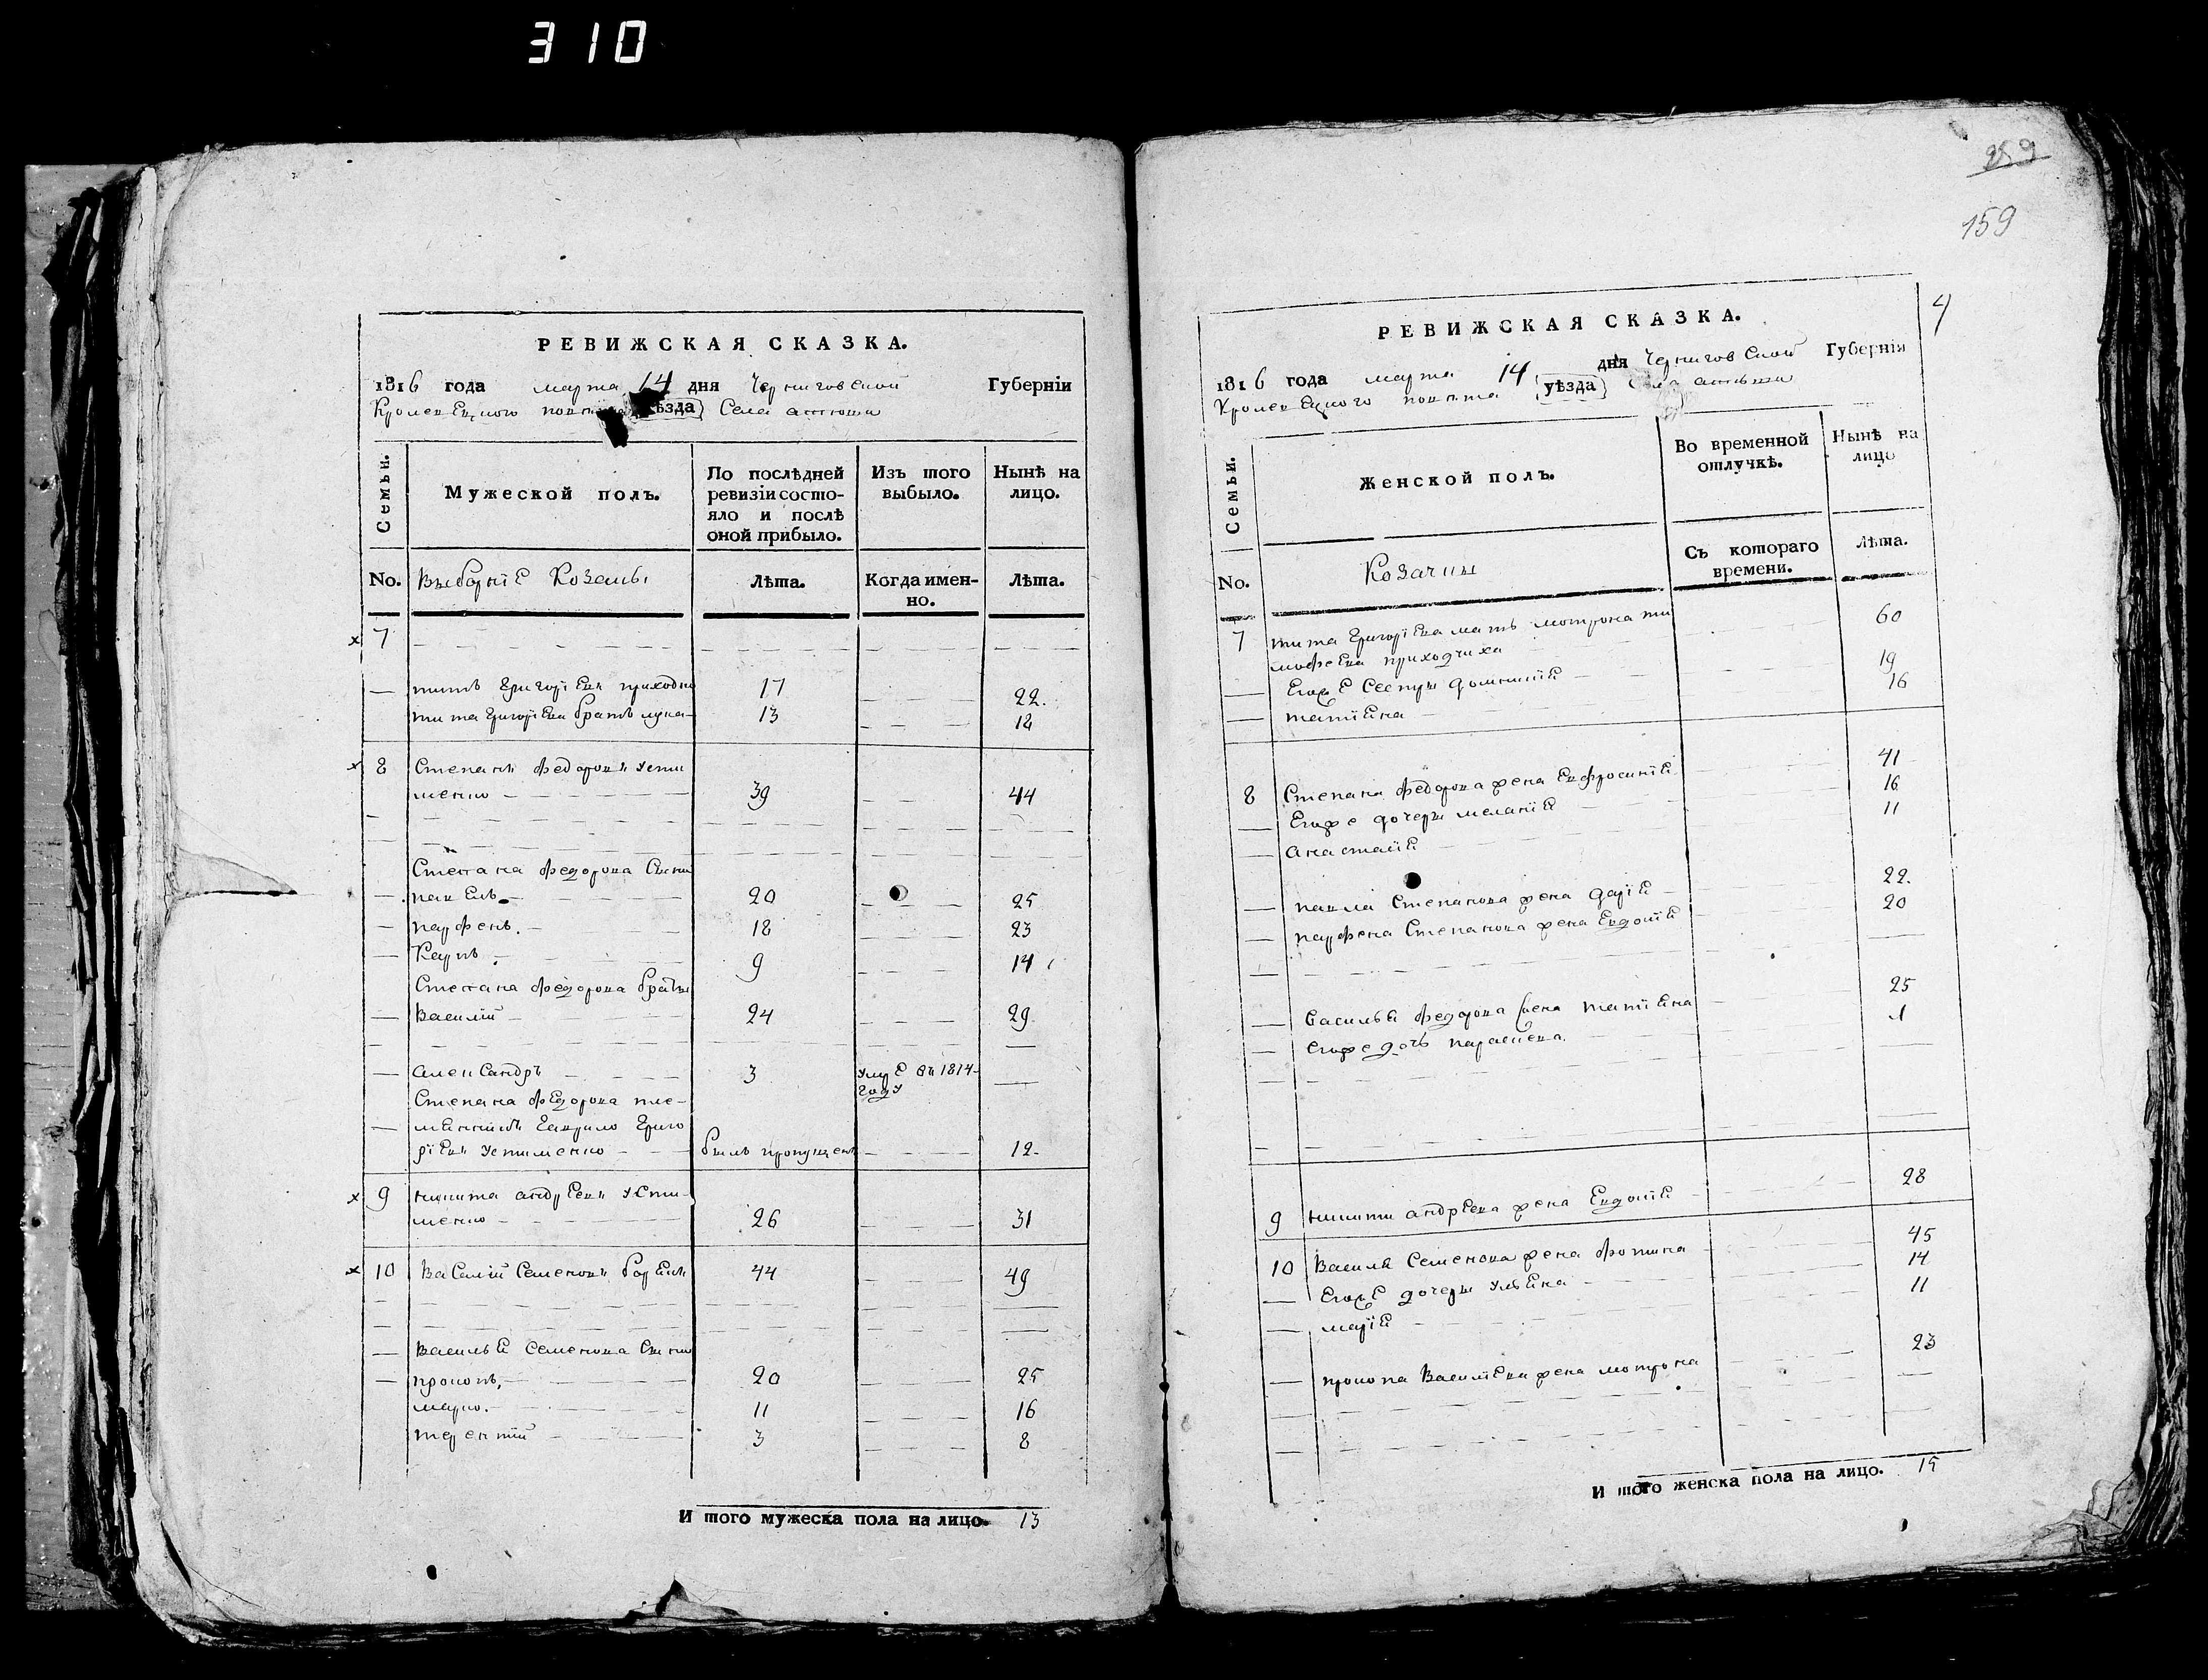 310
259
159
4
РЕВИЖСКАЯ СКАЗКА.
1816 года марта 14 дня Черниговской Губерніи
Кролевецкого повѣта уѣзда Села
Семьи.
Мужеской полъ.
По послѣдней ревизіи состо-
яло и послѣ
оной прибыло.
Изъ того
выбыло.
Нынѣ на
лицо.
No. Выборніе Козаки Лѣта. Когда имен-
но. Лѣта.
7
титъ Григоріевъ приходко 17 22.
тита Григоріева братъ лука 13 18
8 Степанъ Федоровъ Усти
менко 39 44
Степана федорова Сини
павелъ 20 25
парфенъ. 18 23
Карпъ 9 14
Степана федорова братья
Василій 24 29
алеКсандръ 3 умре въ 1814
году
Степана федорова пле-
мѣнникъ Гаврило Григо
ріевъ Устименко билъ пропущенъ 12
9 никита андреевъ Усти-
менко 26 31
10 Василій Семеновъ 44 49
Василья Семенова Сини
прокопъ, 20 25
марко. 11 16
терентій 3 8
И того мужеска пола на лицо. 13
РЕВИЖСКАЯ СКАЗКА.
1816 года марта 14 дня Черниговской Губернія
Кролевецкого повѣта уѣзда Села
Семьи.
Женской полъ.
Во временной
отлучкѣ.
Нынѣ на
лицо
No. Козачки Съ котораго
времени. Лѣта.
7 тита Григоріева мать мотрона ти 60
мофеева приходчиха
Егоже Сестри домникія 19
татіяна 16
8 Степана Федорова жена Евфросинія 41
Егоже дочери меланія 16
анастасія 11
павла Степанова жена дарія 22.
парфена Степанова жена Евдокія 20
Василья федорова жена татіяна 25
егоже дочь параскева. 1
9 никити андреева жена Евдокія 28
10 Василя Семенова жена фотина 45
Егоже дочери ульяна 14
марія 11
прокопа Василіева жена мотрона 23
И того женска пола на лицо. 15